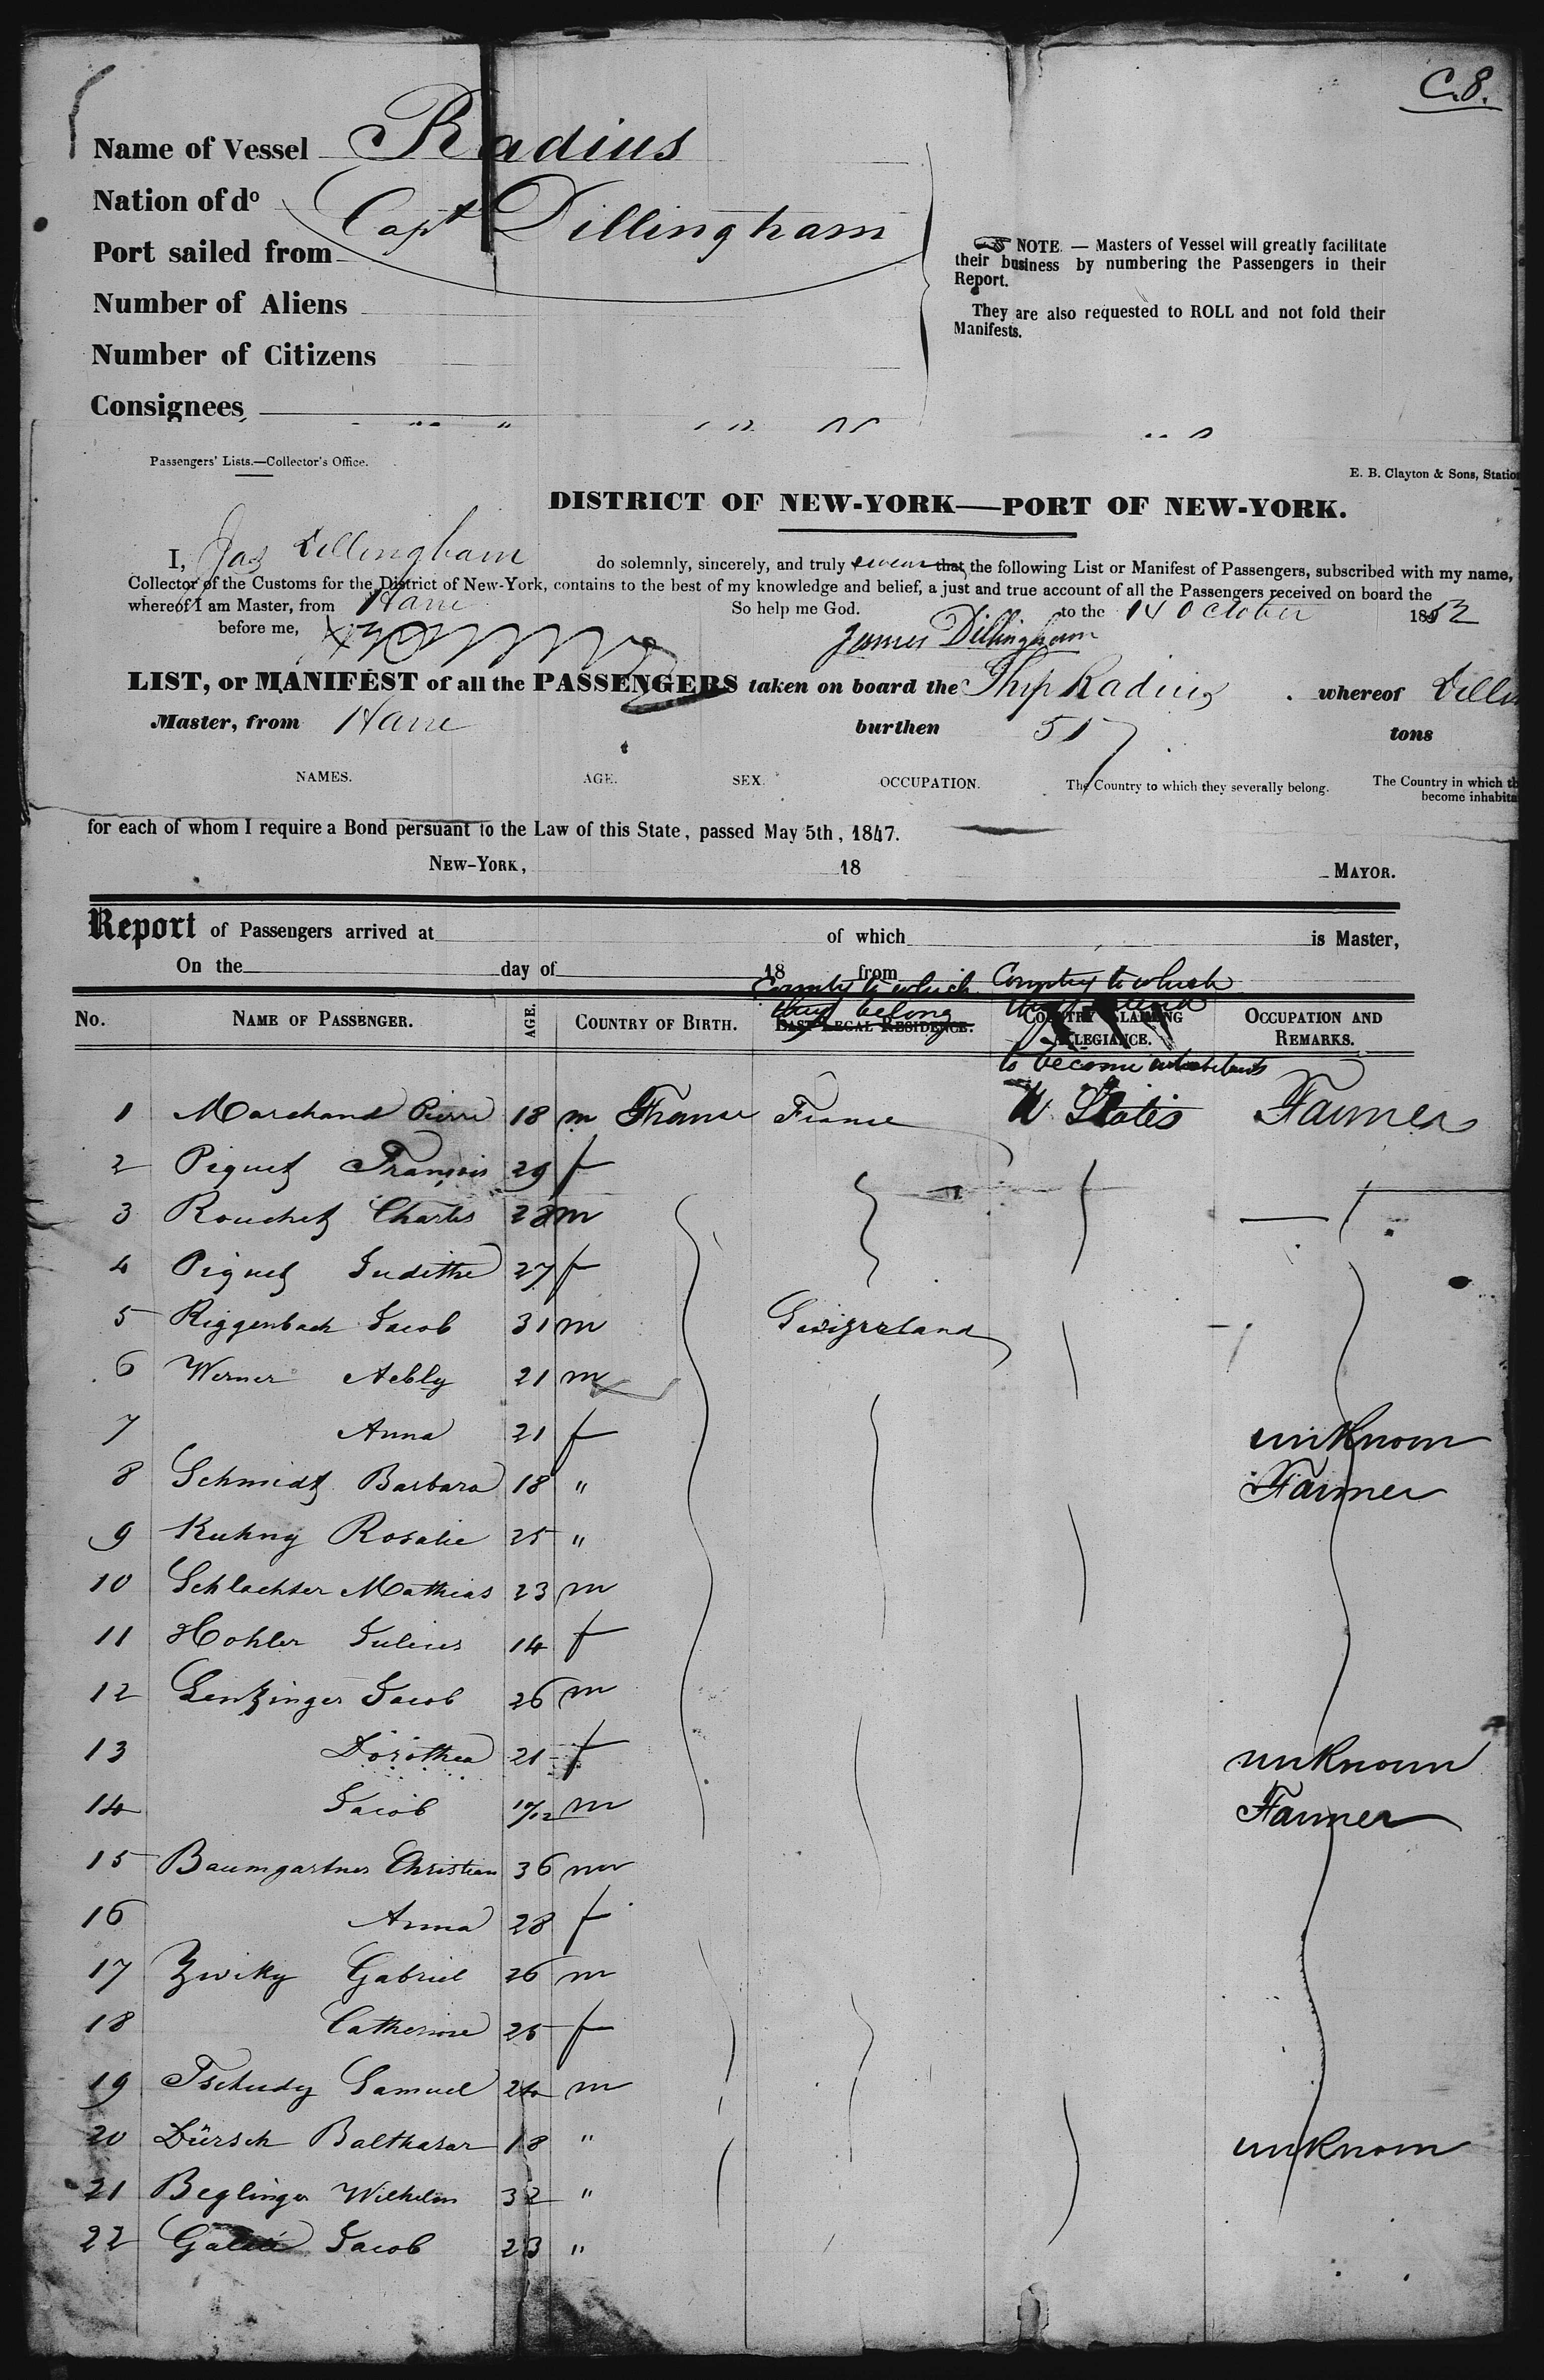 C. 8.
Name of Vessel Radius
Nation of do
Capt Dillingham
Port sailed from
Number of Aliens
Number of Citizens
Consignees
NOTE. — Masters of Vessel will greatly facilitate
their business by numbering the Passengers in their
Report.
They are also requested to ROLL and not fold their
Manifests.
Passengers' Lists.—Collector's Office.
E. B. Clayton & Sons, Station
DISTRICT OF NEW-YORK—PORT OF NEW-YORK.
I, Jas Dillingham do solemnly, sincerely, and truly swear that the following List or Manifest of Passengers, subscribed with my name,
Collector of the Customs for the District of New-York, contains to the best of my knowledge and belief, a just and true account of all the Passengers received on board the
whereof I am Master, from Havre So help me God. to the 14 October 1852
before me, James Dillingham
LIST, or MANIFEST of all the PASSENGERS taken on board the Ship Radius whereof Dillin
Master, from Havre burthen 517 tons
NAMES. AGE. SEX. OCCUPATION. The Country to which they severally belong. The Country in which th
become inhabita
for each of whom I require a Bond persuant to the Law of this State, passed May 5th, 1847.
NEW-YORK, 18 MAYOR.
Report of Passengers arrived at of which is Master,
On the day of 18 from
Country to which they belong
Country to which they intend to become inhabitants
No. NAME OF PASSENGER. AGE. COUNTRY OF BIRTH. LAST LEGAL RESIDENCE. COUNTRY CLAIMING ALLEGIANCE. OCCUPATION AND REMARKS.
1 Marchand Pierre 18 m France France U States Farmer
2 Piquet François 29 f
3 Rouchet Charles 28 m
4 Piquet Judithe 27 f
5 Riggenbach Jacob 31 m Swizzerland
6 Werner Aebly 21 m
7 Anna 21 f unknown
8 Schmidt Barbara 18 " Farmer
9 Kuhny Rosalie 25 "
10 Schlachter Mathias 23 m
11 Hohler Julius 14 f
12 Lentzinger Jacob 26 m
13 Dorothea 21 f unknown
14 Jacob 10/12 m Farmer
15 Baumgartner Christian 36 m
16 Anna 28 f
17 Zwiky Gabriel 26 m
18 Catherine 25 f
19 Tschudy Samuel 24 m
20 Dürsch Balthasar 18 " unknown
21 Beglinger Wilhelm 32 "
22 Jacob 23 "